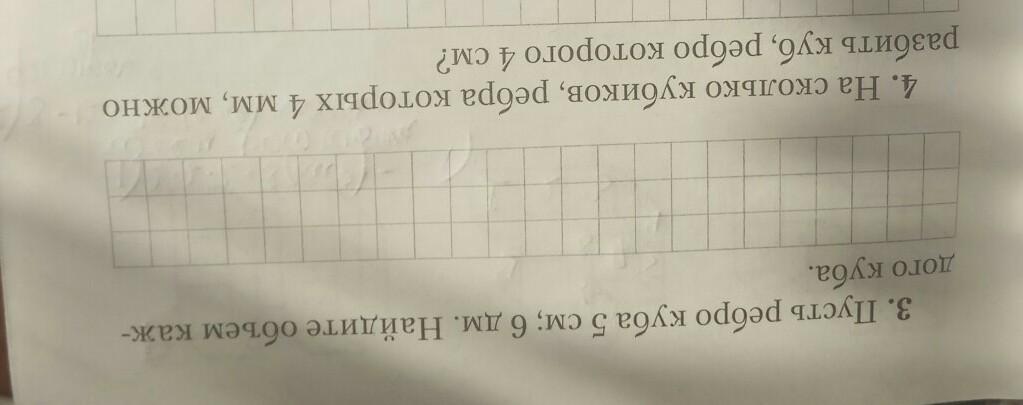 3. Пусть ребро куба 5 см; 6 дм. Найдите объем каж-
дого куба.
4. На сколько кубиков, ребра которых 4 мм, можно
разбить куб, ребро которого 4 см?